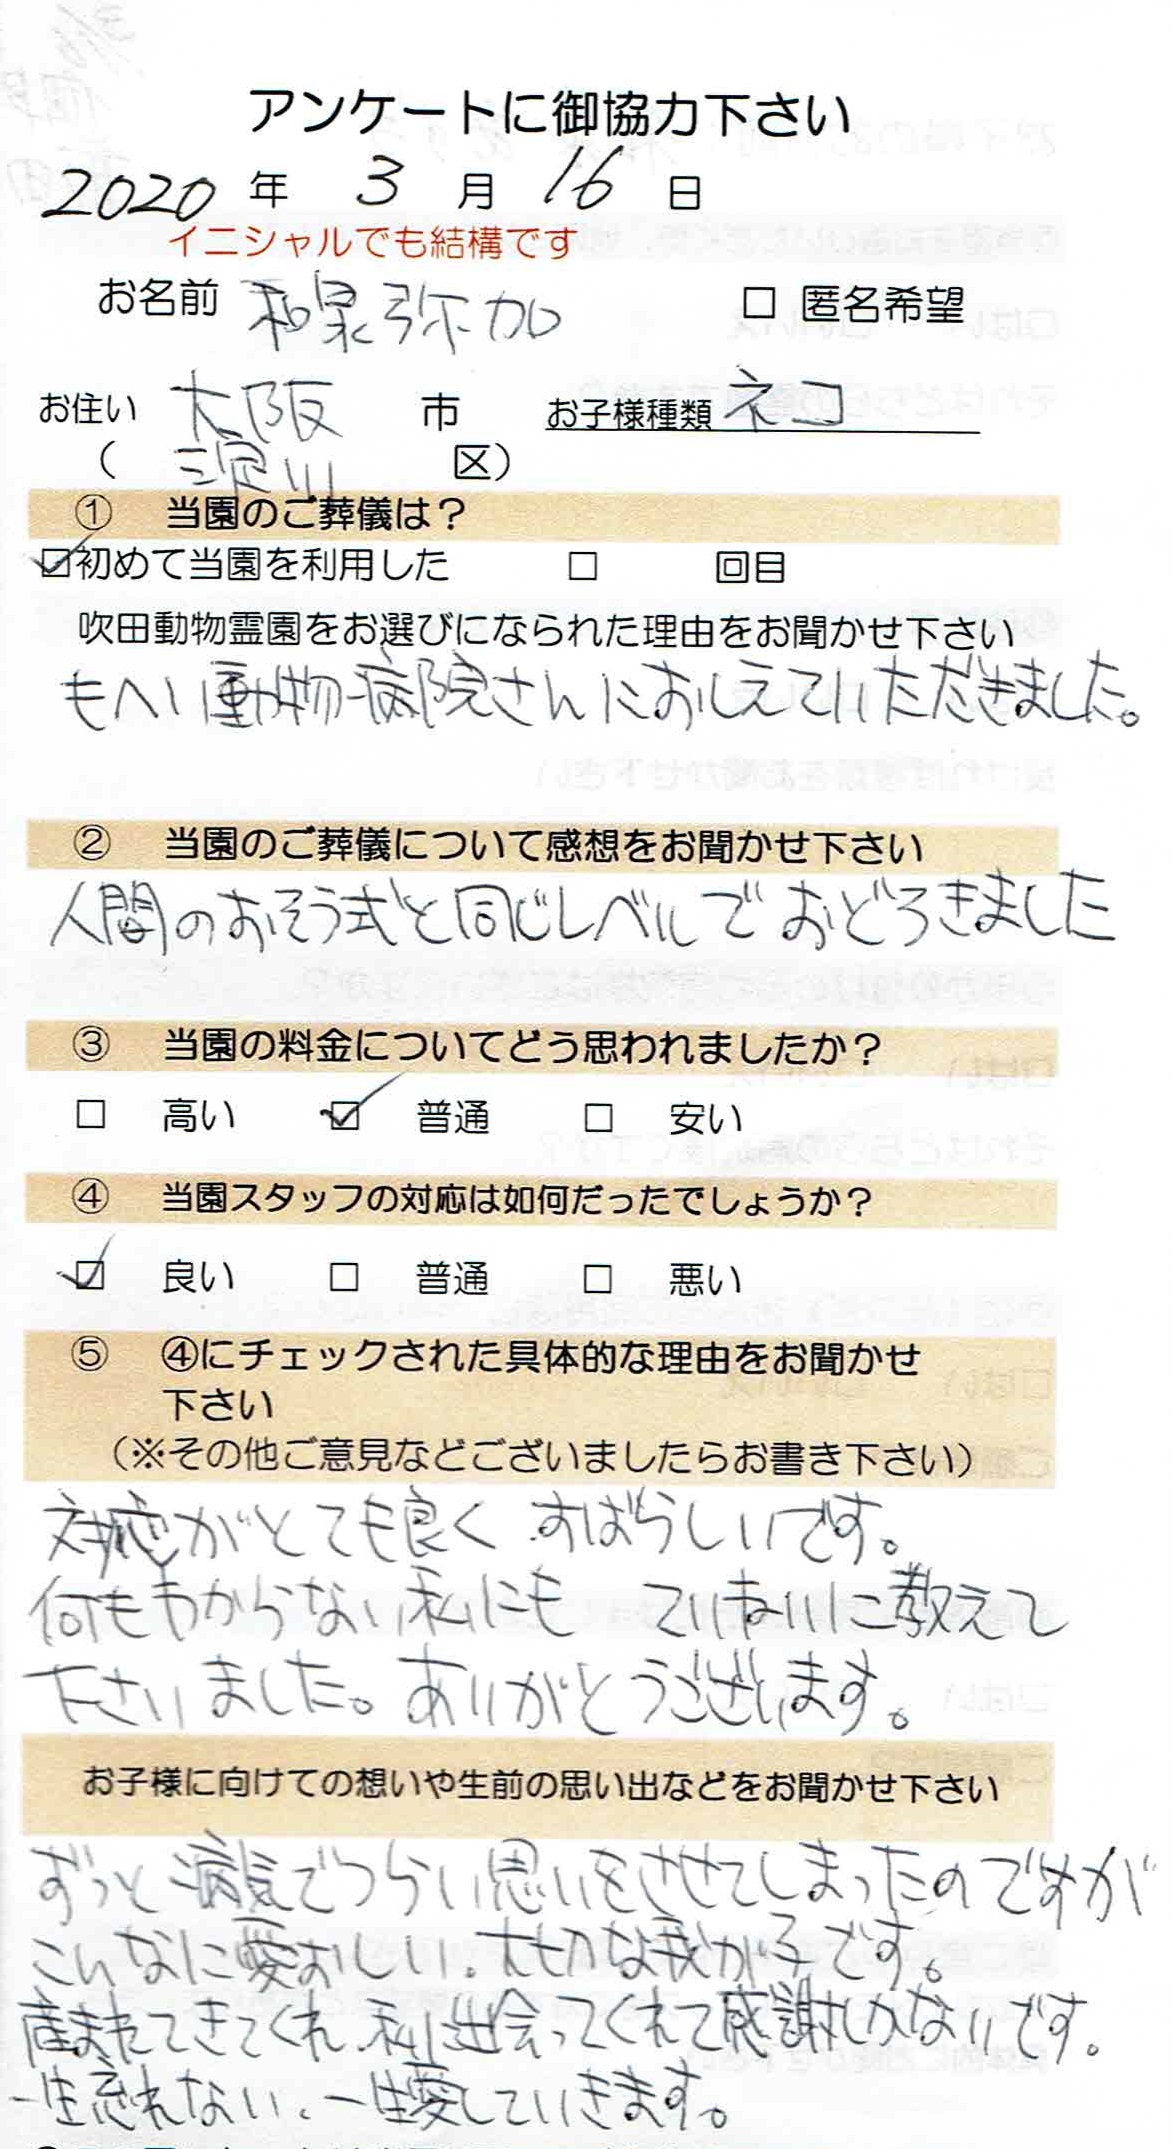 アンケートに御協力下さい
2020 年 3 月 16 日
イニシャルでも結構です
お名前 和泉弥加 □ 匿名希望
お住い 大阪 市 お子様種類 ネコ
( 淀川 区)
① 当園のご葬儀は?
☑初めて当園を利用した □ 回目
吹田動物霊園をお選びになられた理由をお聞かせ下さい
もへい動物病院さんにおしえていただきました。
② 当園のご葬儀について感想をお聞かせ下さい
人間のおそう式と同じレベルでおどろきました
③ 当園の料金についてどう思われましたか?
□ 高い ☑ 普通 □ 安い
④ 当園スタッフの対応は如何だったでしょうか?
☑ 良い □ 普通 □ 悪い
⑤ ④にチェックされた具体的な理由をお聞かせ
下さい
(※その他ご意見などございましたらお書き下さい)
対応がとても良く すばらしいです。
何もわからない私にも ていねいに教えて
下さいました。ありがとうございます。
お子様に向けての想いや生前の思い出などをお聞かせ下さい
ずっと病気でつらい思いをさせてしまったのですが
こんなに愛おしい、大切な我が子です。
産まれてきてくれ、私に出会ってくれて感謝しかないです。
一生忘れない、一生愛していきます。